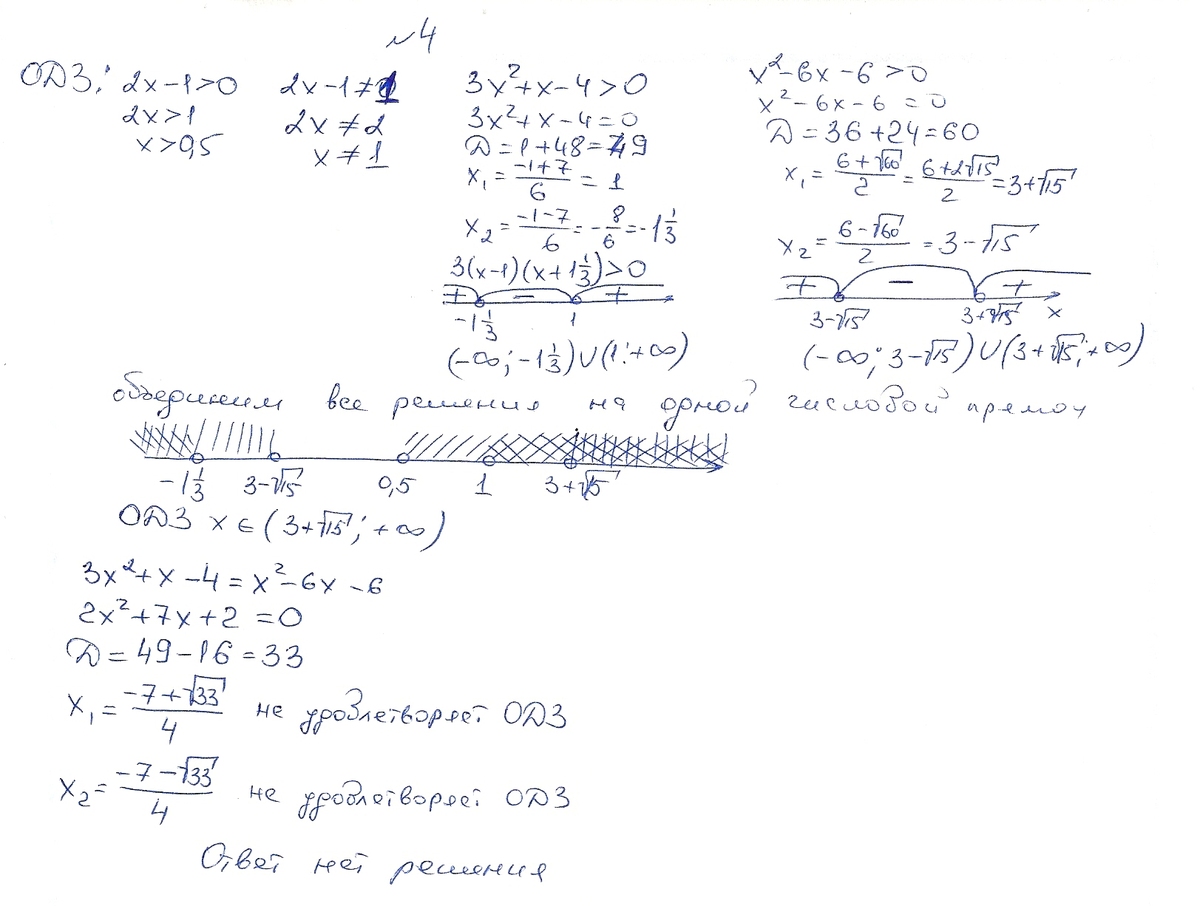 №4
ОДЗ: 2x-1>0
2x>1
x>0,5
2x-1≠1
2x≠2
x≠1
3x²+x-4>0
3x²+x-4=0
Д=1+48=49
x₁=(-1+7)/6=1
x₂=(-1-7)/6=-8/6=-1 1/3
3(x-1)(x+1 1/3)>0
+ - +
-1 1/3 1
(-∞;-1 1/3)∪(1;+∞)
x²-6x-6>0
x²-6x-6=0
Д=36+24=60
x₁=(6+√60)/2=(6+2√15)/2=3+√15
x₂=(6-√60)/2=3-√15
+ - +
3-√15 3+√15 x
(-∞;3-√15)∪(3+√15;+∞)
объединим все решения на одной числовой прямой
-1 1/3 3-√15 0,5 1 3+√15
ОДЗ x∈(3+√15;+∞)
3x²+x-4=x²-6x-6
2x²+7x+2=0
Д=49-16=33
x₁=(-7+√33)/4 не удовлетворяет ОДЗ
x₂=(-7-√33)/4 не удовлетворяет ОДЗ
Ответ нет решения